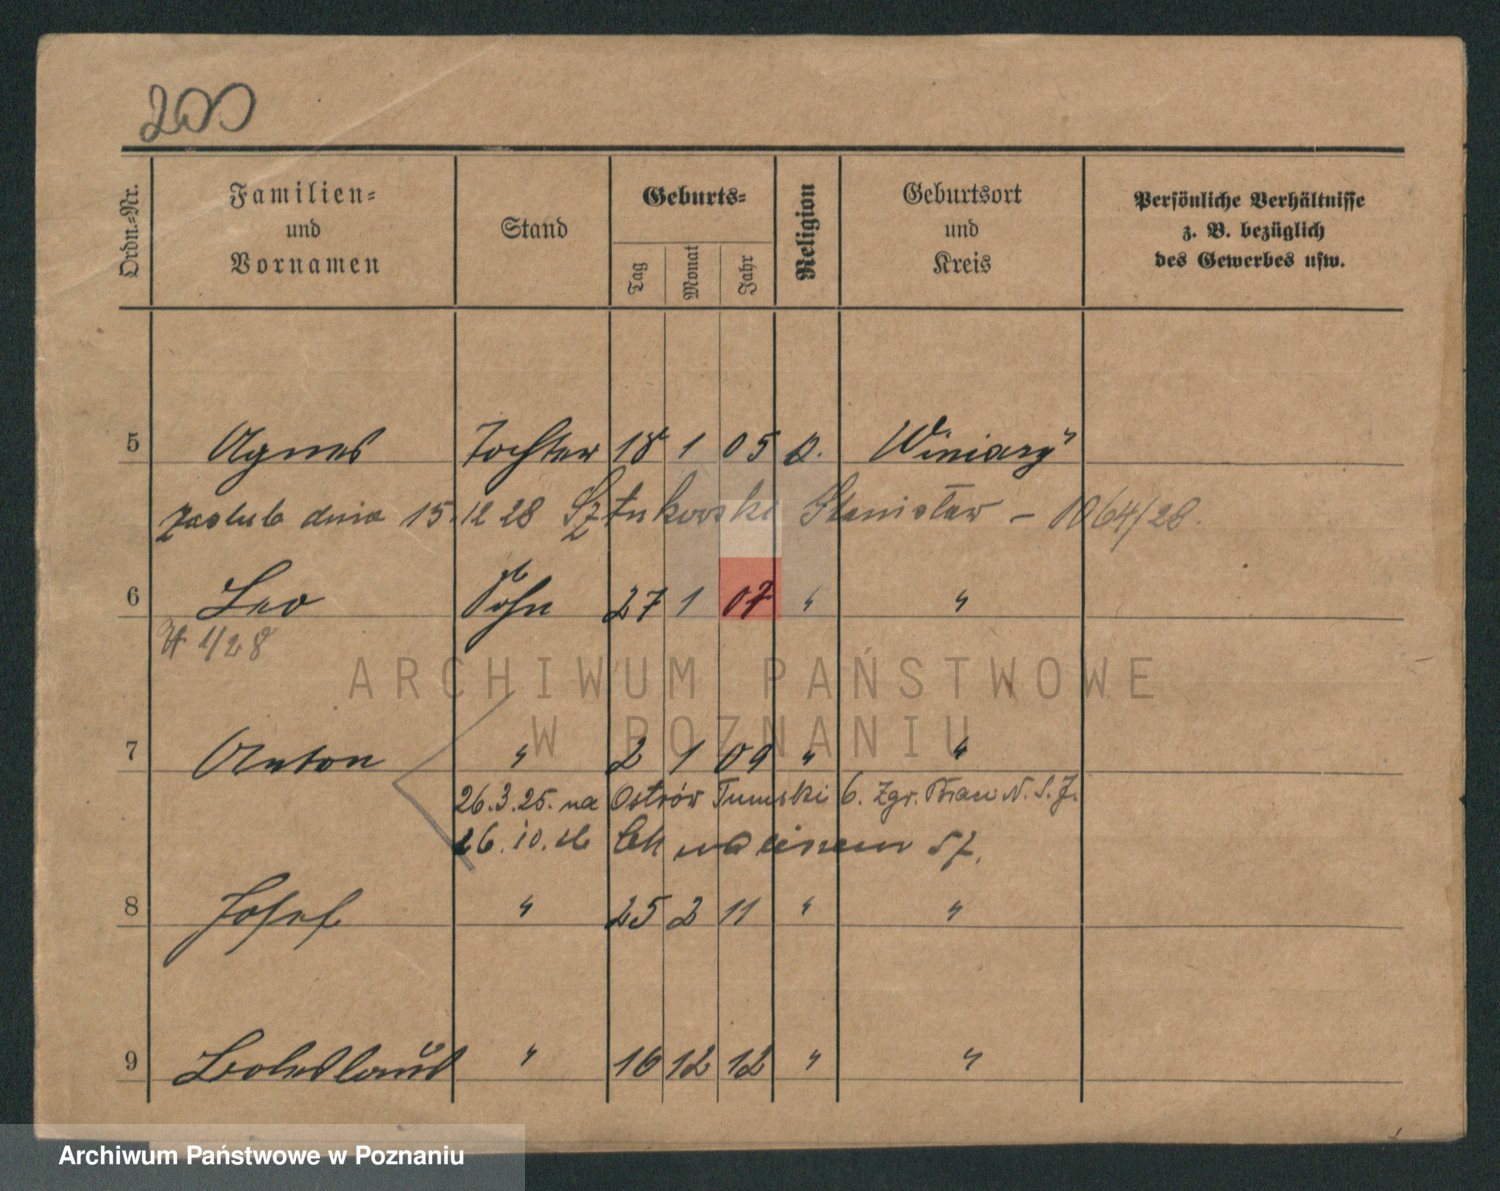 200
Ordn.-Nr. Familien- und Vornamen Stand Geburts- Tag Monat Jahr Religion Geburtsort und Kreis Persönliche Verhältnisse z. B. bezüglich des Gewerbes usw.
5 Agnes Tochter 18 1 05 Winiary
zaslub dnia 15.12 28 Sztukowski Stanisław – 1064/28.
6 Leo Sohn 27 1 07 " "
1/28
ARCHIWUM PAŃSTWOWE
W POZNANIU
7 Anton " 2 1 09 " "
26.3.25. na Ostrów Tumski 6. Zgr.
26.10.
8 Josef " 25 2 11 " "
9 Boleslaus " 16 12 12 " "
Archiwum Państwowe w Poznaniu